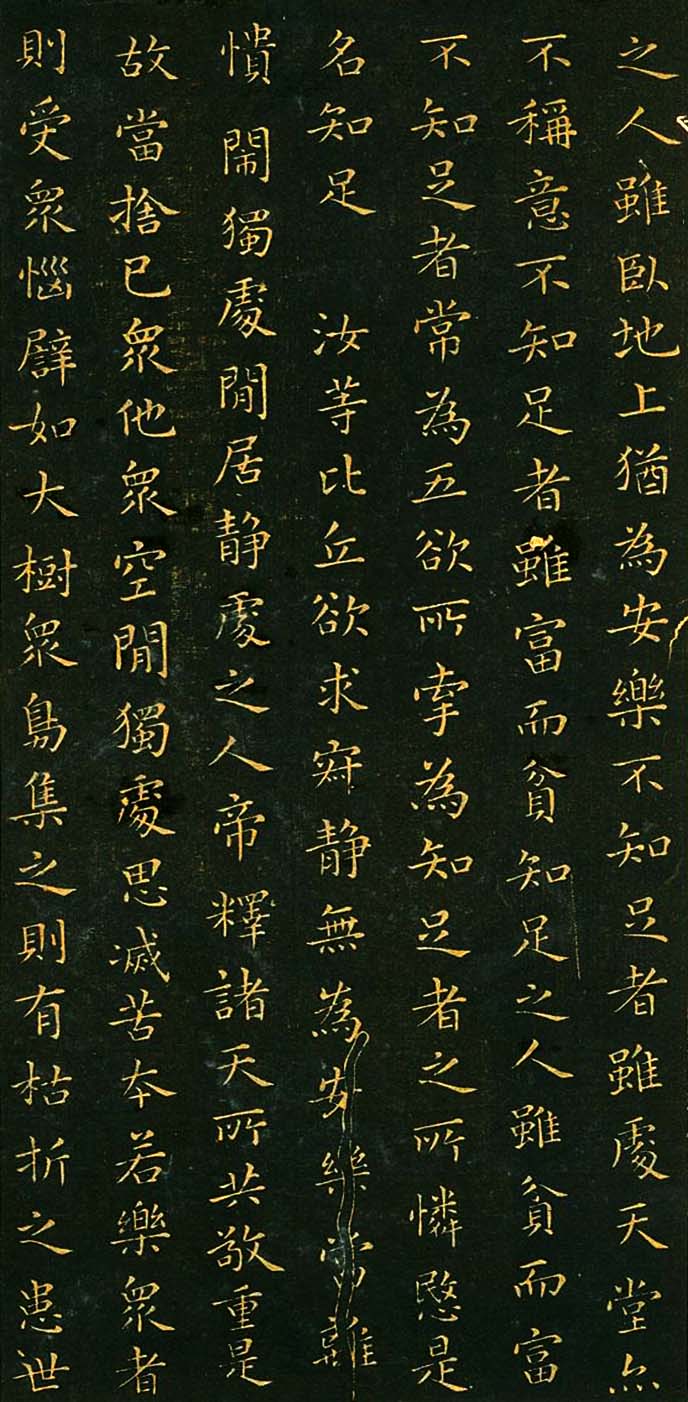 之人雖臥地上猶為安樂不知足者雖處天堂亦
不稱意不知足者雖富而貧知足之人雖貧而富
不知足者常為五欲所牽為知足者之所憐愍是
名知足　汝等比丘欲求寂静無為安樂當離
憒閙獨處閒居静處之人帝釋諸天所共敬重是
故當捨已眾他眾空閒獨處思滅苦本若樂眾者
則受眾惱譬如大樹眾鳥集之則有枯折之患世